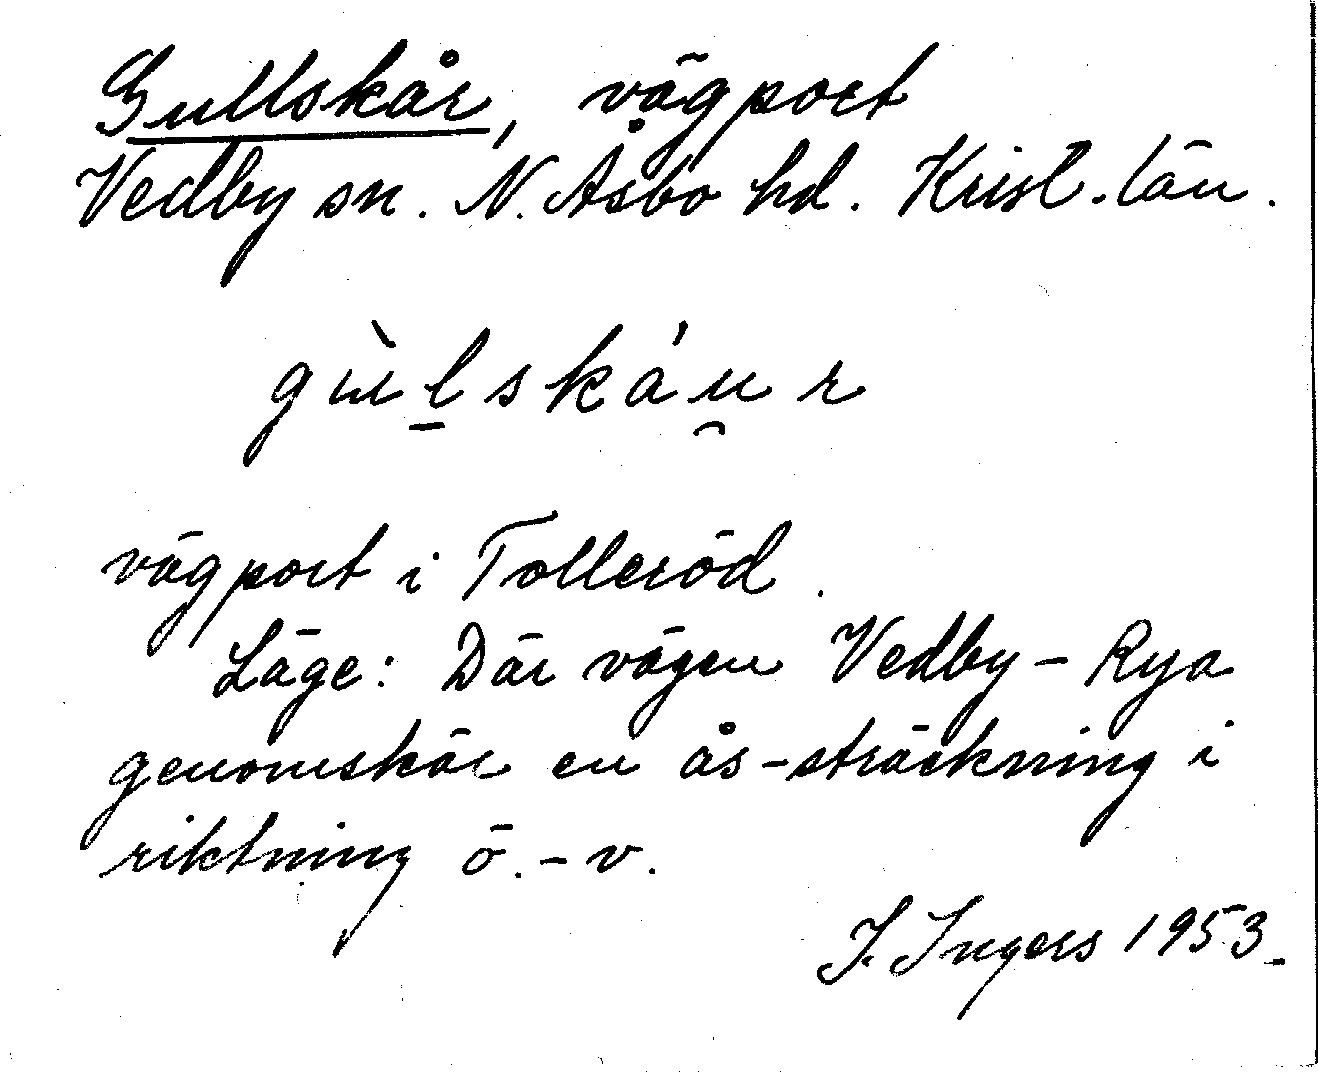 Gullskår, vägport
Vedby sn. N. Åsbo hd. Krist. län.
gùl̠skáu̯r
vägport i Tolleröd.
Läge: Där vägen Vedby – Rya
genomskär en ås-sträckning i
riktning ö. – v.
I. Ingers 1953.